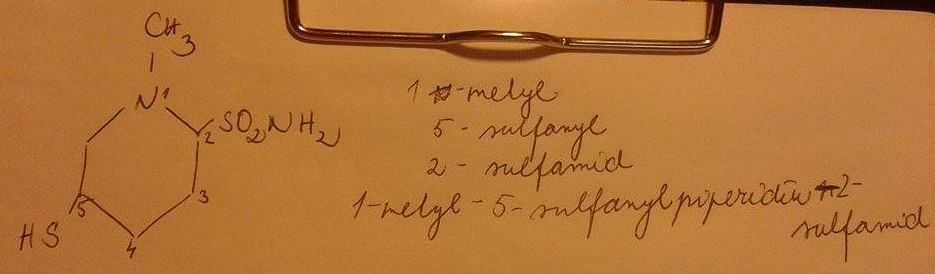 CH3
N1
2 SO2NH2
3
4
5
HS
1 -metyl
5 - sulfanyl
2 - sulfamid
1-metyl-5-sulfanylpiperidin-2-
sulfamid